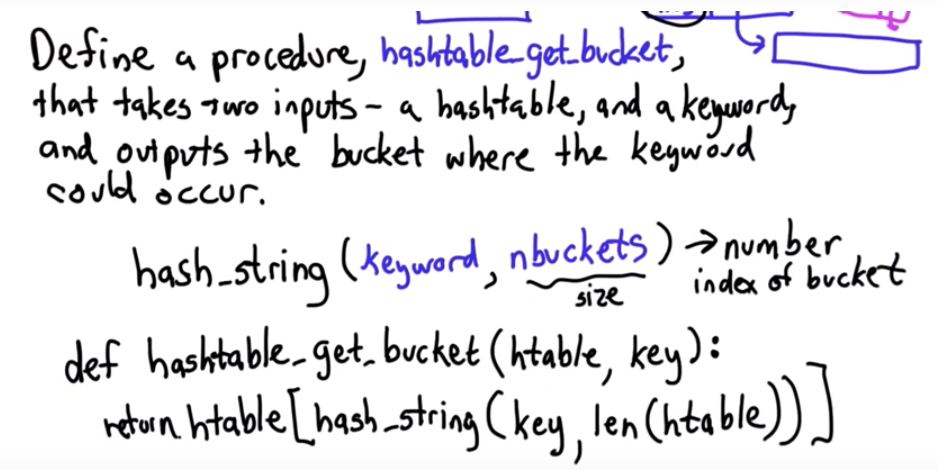 Define a procedure, hashtable_get_bucket,
that takes two inputs - a hashtable, and a keyword,
and outputs the bucket where the keyword
could occur.
hash_string (keyword, nbuckets) → number
size index of bucket
def hashtable_get_bucket (htable, key):
return htable [hash_string (key, len (htable))]